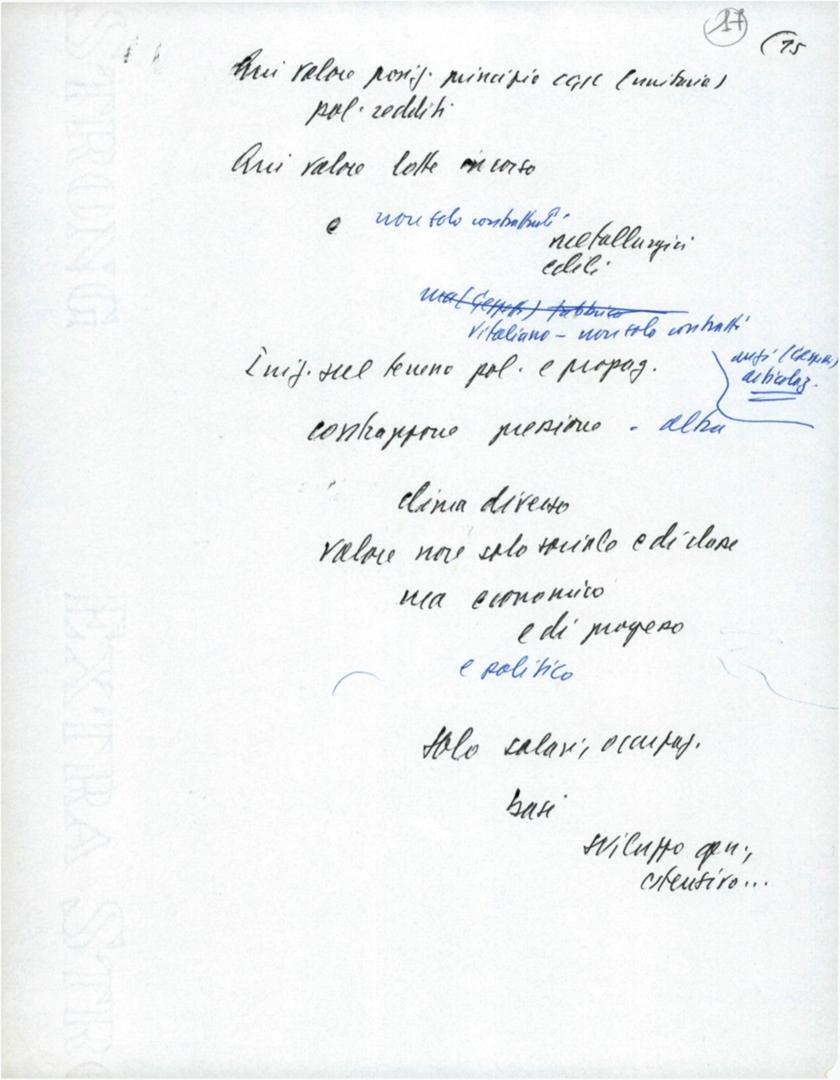 17
(15
Qui valore posiz. principio CGIL (unitaria)
pol. redditi
Qui valore lotte in corso
e non solo contrattuali
metallurgici
edili
ma fabbrica
Vitaliano - non solo contratti
anzi
articolaz.
Iniz. sul terreno pol. e propag.
contrappone pressione - altra
clima diverso
valore non solo sociale e di classe
ma economico
e di progresso
e politico
solo salari, occupaz.
basi
sviluppo gen.,
estensivo...
STRONG
EXTRA STRO